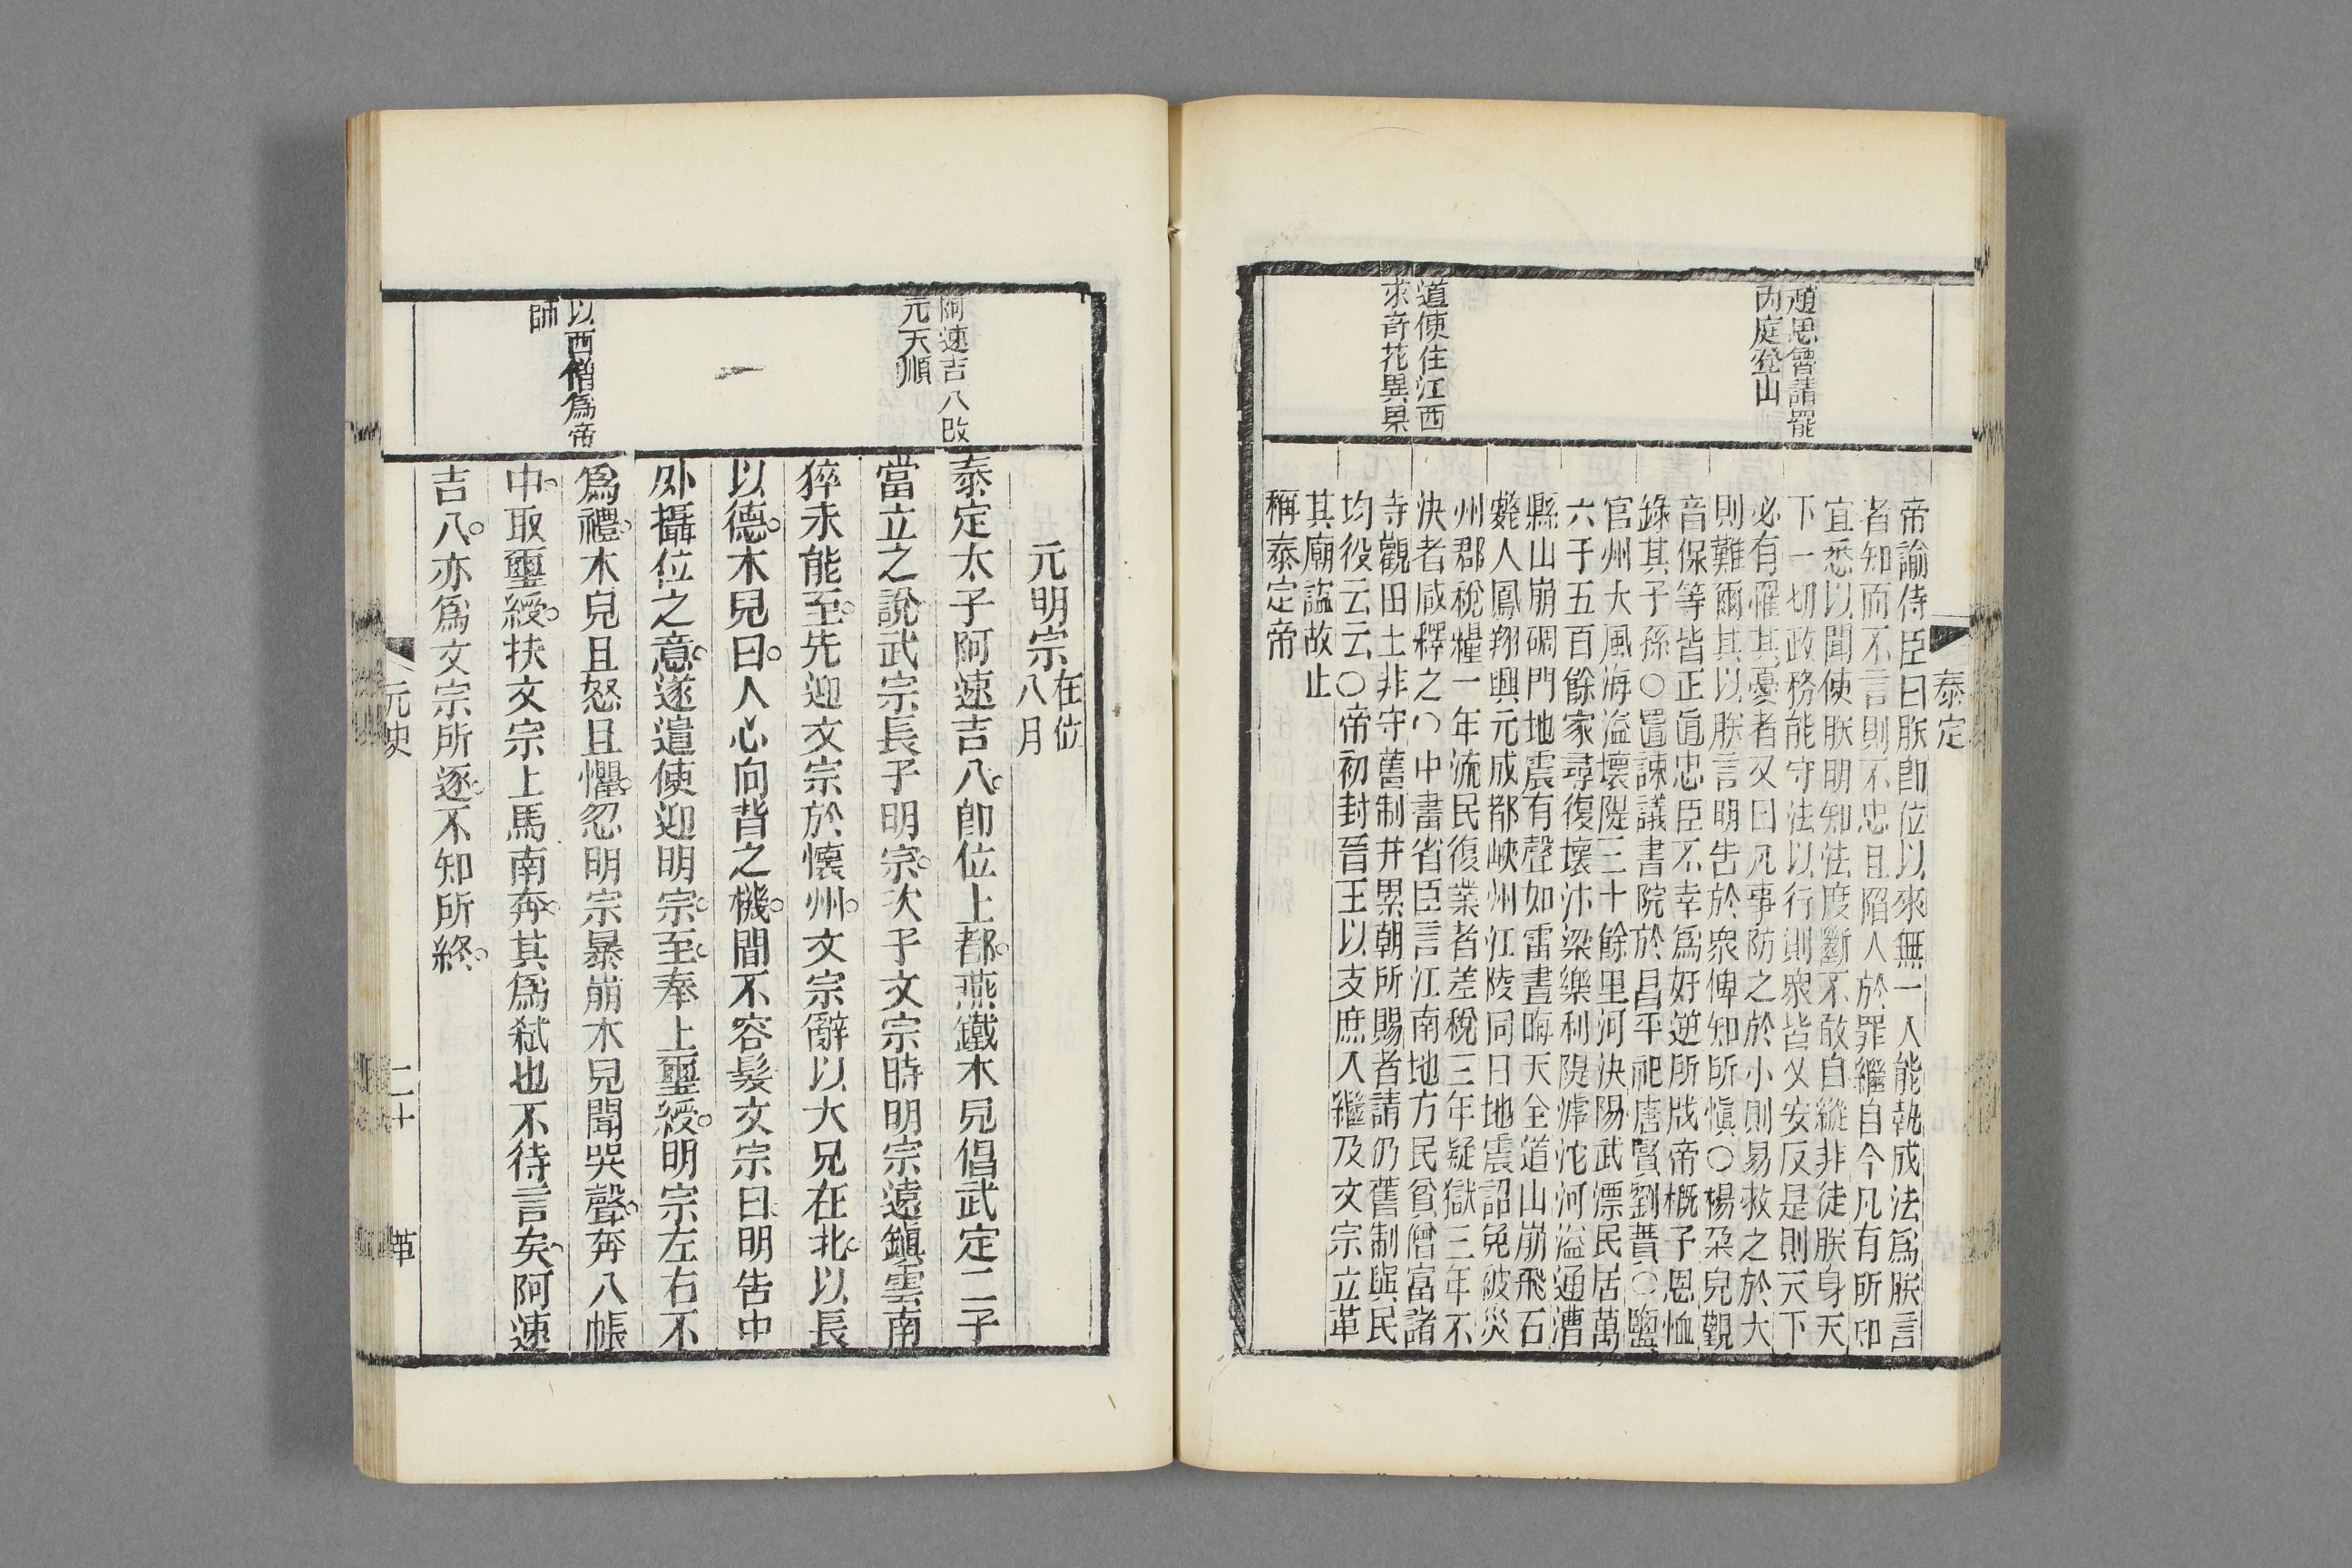 泰定
趙思魯請罷
內庭登山
遣使往江西
求奇花異果
帝諭侍臣曰朕卽位以來無一人能執成法爲朕言
者知而不言則不忠且陷人於罪繼自今凡有所卬
宜悉以聞使朕明知法度斷不敢自縱非徒朕身天
下一切政務能守法以行則衆皆乂安反是則天下
必有罹其憂者又曰凡事防之於小則易救之於大
則難爾其以朕言明告於衆俾知所愼○楊朶兒觀
音保等皆正直忠臣不幸爲奸逆所戕帝槪予恩恤
錄其子孫○置諫議書院於昌平祀唐賢劉蕡○鹽
官州大風海溢壞隄三十餘里河決陽武漂民居萬
六千五百餘家尋復壞沛梁樂利隄滹沱河溢通漕
縣山崩碉門地震有聲如雷晝晦天全道山崩飛石
斃人鳳翔興元成都峽州江陵同日地震詔免破災
州郡稅糧一年流民復業者差稅三年疑獄三年不
決者咸釋之○中書省臣言江南地方民貧僧富諸
寺觀田土非守舊制并累朝所賜者請仍舊制與民
均役云云○帝初封晉王以支庶入繼及文宗立革
其廟謚故止
稱泰定帝
阿速吉八改
元天順
以西僧爲帝
師
元明宗在位
八月
泰定太子阿速吉八。卽位上都。燕鐵木兒倡武定二子
當立之說武宗長子明宗。次子文宗時明宗遠鎭雲南
猝未能至。先迎文宗於懷州。文宗辭以大兄在北。以長
以德。木兒曰。人心向背之機。間不容髮文宗曰。明告中
外攝位之意。遂遣使迎明宗。至。奉上璽綬。明宗左右不
爲禮。木兒且怒且懼。忽明宗暴崩木兒聞哭聲。奔入帳
中。取璽綬。扶文宗上馬南奔。其爲弑也不待言矣。阿速
吉八。亦爲文宗所逐。不知所終。
元史
二十
革